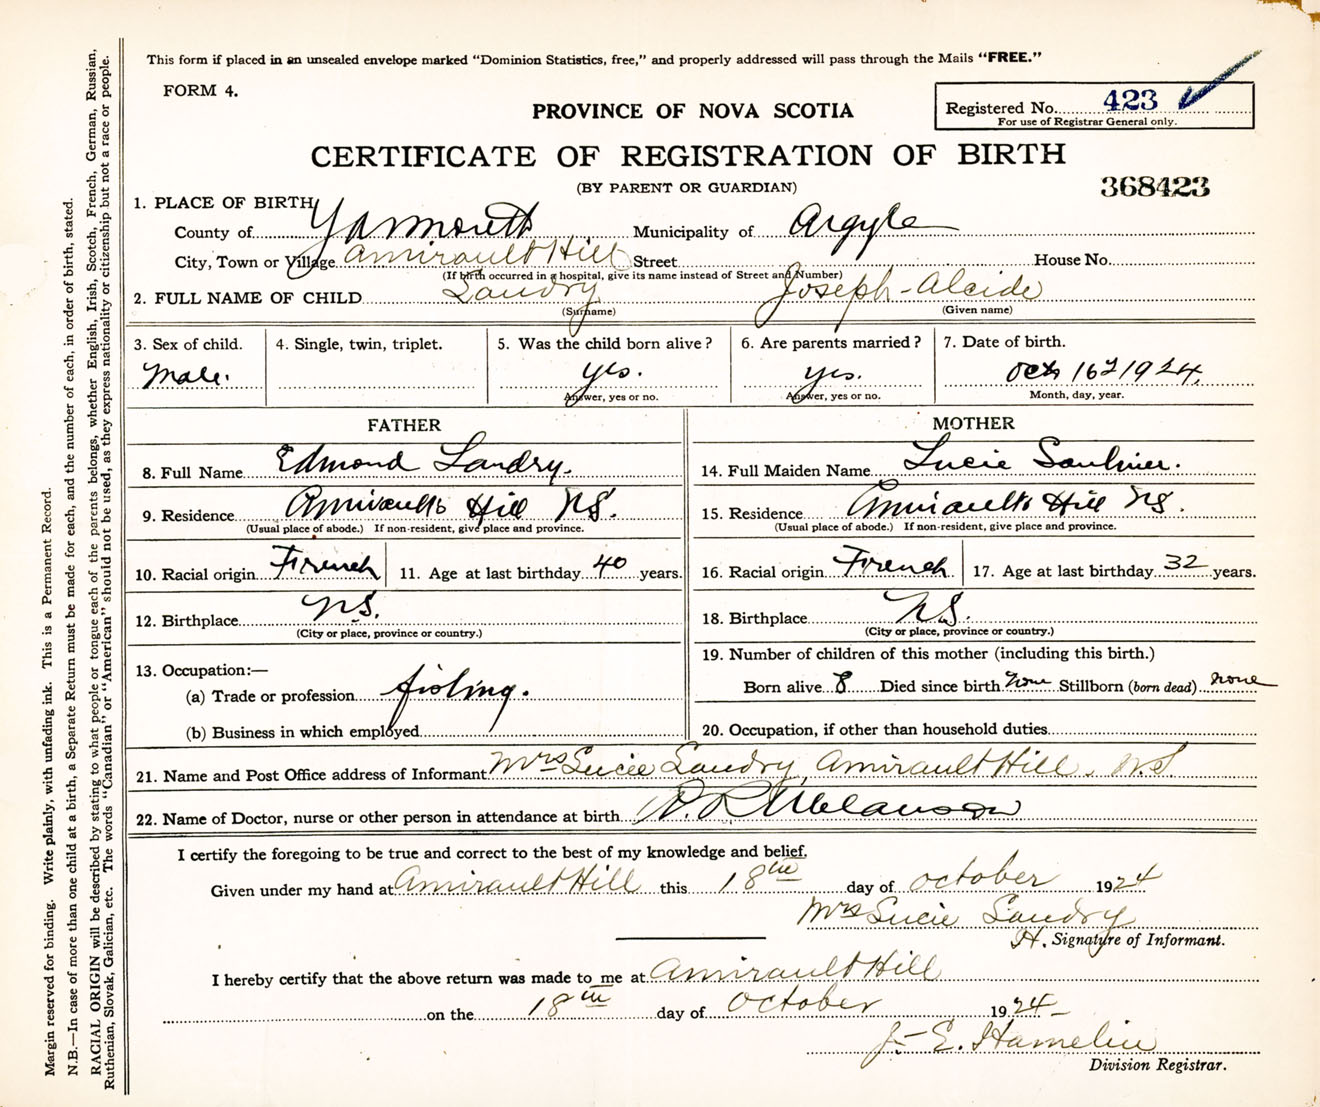 This form if placed in an unsealed envelope marked "Dominion Statistics, free," and properly addressed will pass through the Mails "FREE."
FORM 4.
PROVINCE OF NOVA SCOTIA
Registered No. 423
For use of Registrar General only.
CERTIFICATE OF REGISTRATION OF BIRTH
(BY PARENT OR GUARDIAN)
368423
1. PLACE OF BIRTH
County of Yarmouth Municipality of Argyle
City, Town or Village Amirault Hill Street House No.
(If birth occurred in a hospital, give its name instead of Street and Number)
2. FULL NAME OF CHILD Landry Joseph-Alcide
(Surname) (Given name)
3. Sex of child. 4. Single, twin, triplet. 5. Was the child born alive? 6. Are parents married? 7. Date of birth.
Male. yes. yes. Oct 16 1924.
Answer, yes or no. Answer, yes or no. Month, day, year.
FATHER
8. Full Name Edmond Landry.
9. Residence Amiraults Hill NS.
(Usual place of abode.) If non-resident, give place and province.
10. Racial origin French 11. Age at last birthday 40 years.
12. Birthplace NS.
(City or place, province or country.)
13. Occupation:—
(a) Trade or profession fishing.
(b) Business in which employed
MOTHER
14. Full Maiden Name Lucie Saulnier.
15. Residence Amiraults Hill NS.
(Usual place of abode.) If non-resident, give place and province.
16. Racial origin French 17. Age at last birthday 32 years.
18. Birthplace NS.
(City or place, province or country.)
19. Number of children of this mother (including this birth.)
Born alive 8 Died since birth none Stillborn (born dead) none
20. Occupation, if other than household duties
21. Name and Post Office address of Informant Mrs Lucie Landry, Amirault Hill. N.S
22. Name of Doctor, nurse or other person in attendance at birth Melanson
I certify the foregoing to be true and correct to the best of my knowledge and belief.
Given under my hand at Amirault Hill this 18th day of October 1924
Mrs Lucie Landry
H. Signature of Informant.
I hereby certify that the above return was made to me at Amirault Hill
on the 18th day of October 1924
J-E. Hamelin
Division Registrar.
Margin reserved for binding. Write plainly, with unfading ink. This is a Permanent Record.
N.B.—In case of more than one child at a birth, a Separate Return must be made for each, and the number of each, in order of birth, stated.
RACIAL ORIGIN will be described by stating to what people or tongue each of the parents belongs, whether English, Irish, Scotch, French, German, Russian,
Ruthenian, Slovak, Galician, etc. The words "Canadian" or "American" should not be used, as they express nationality or citizenship but not a race or people.